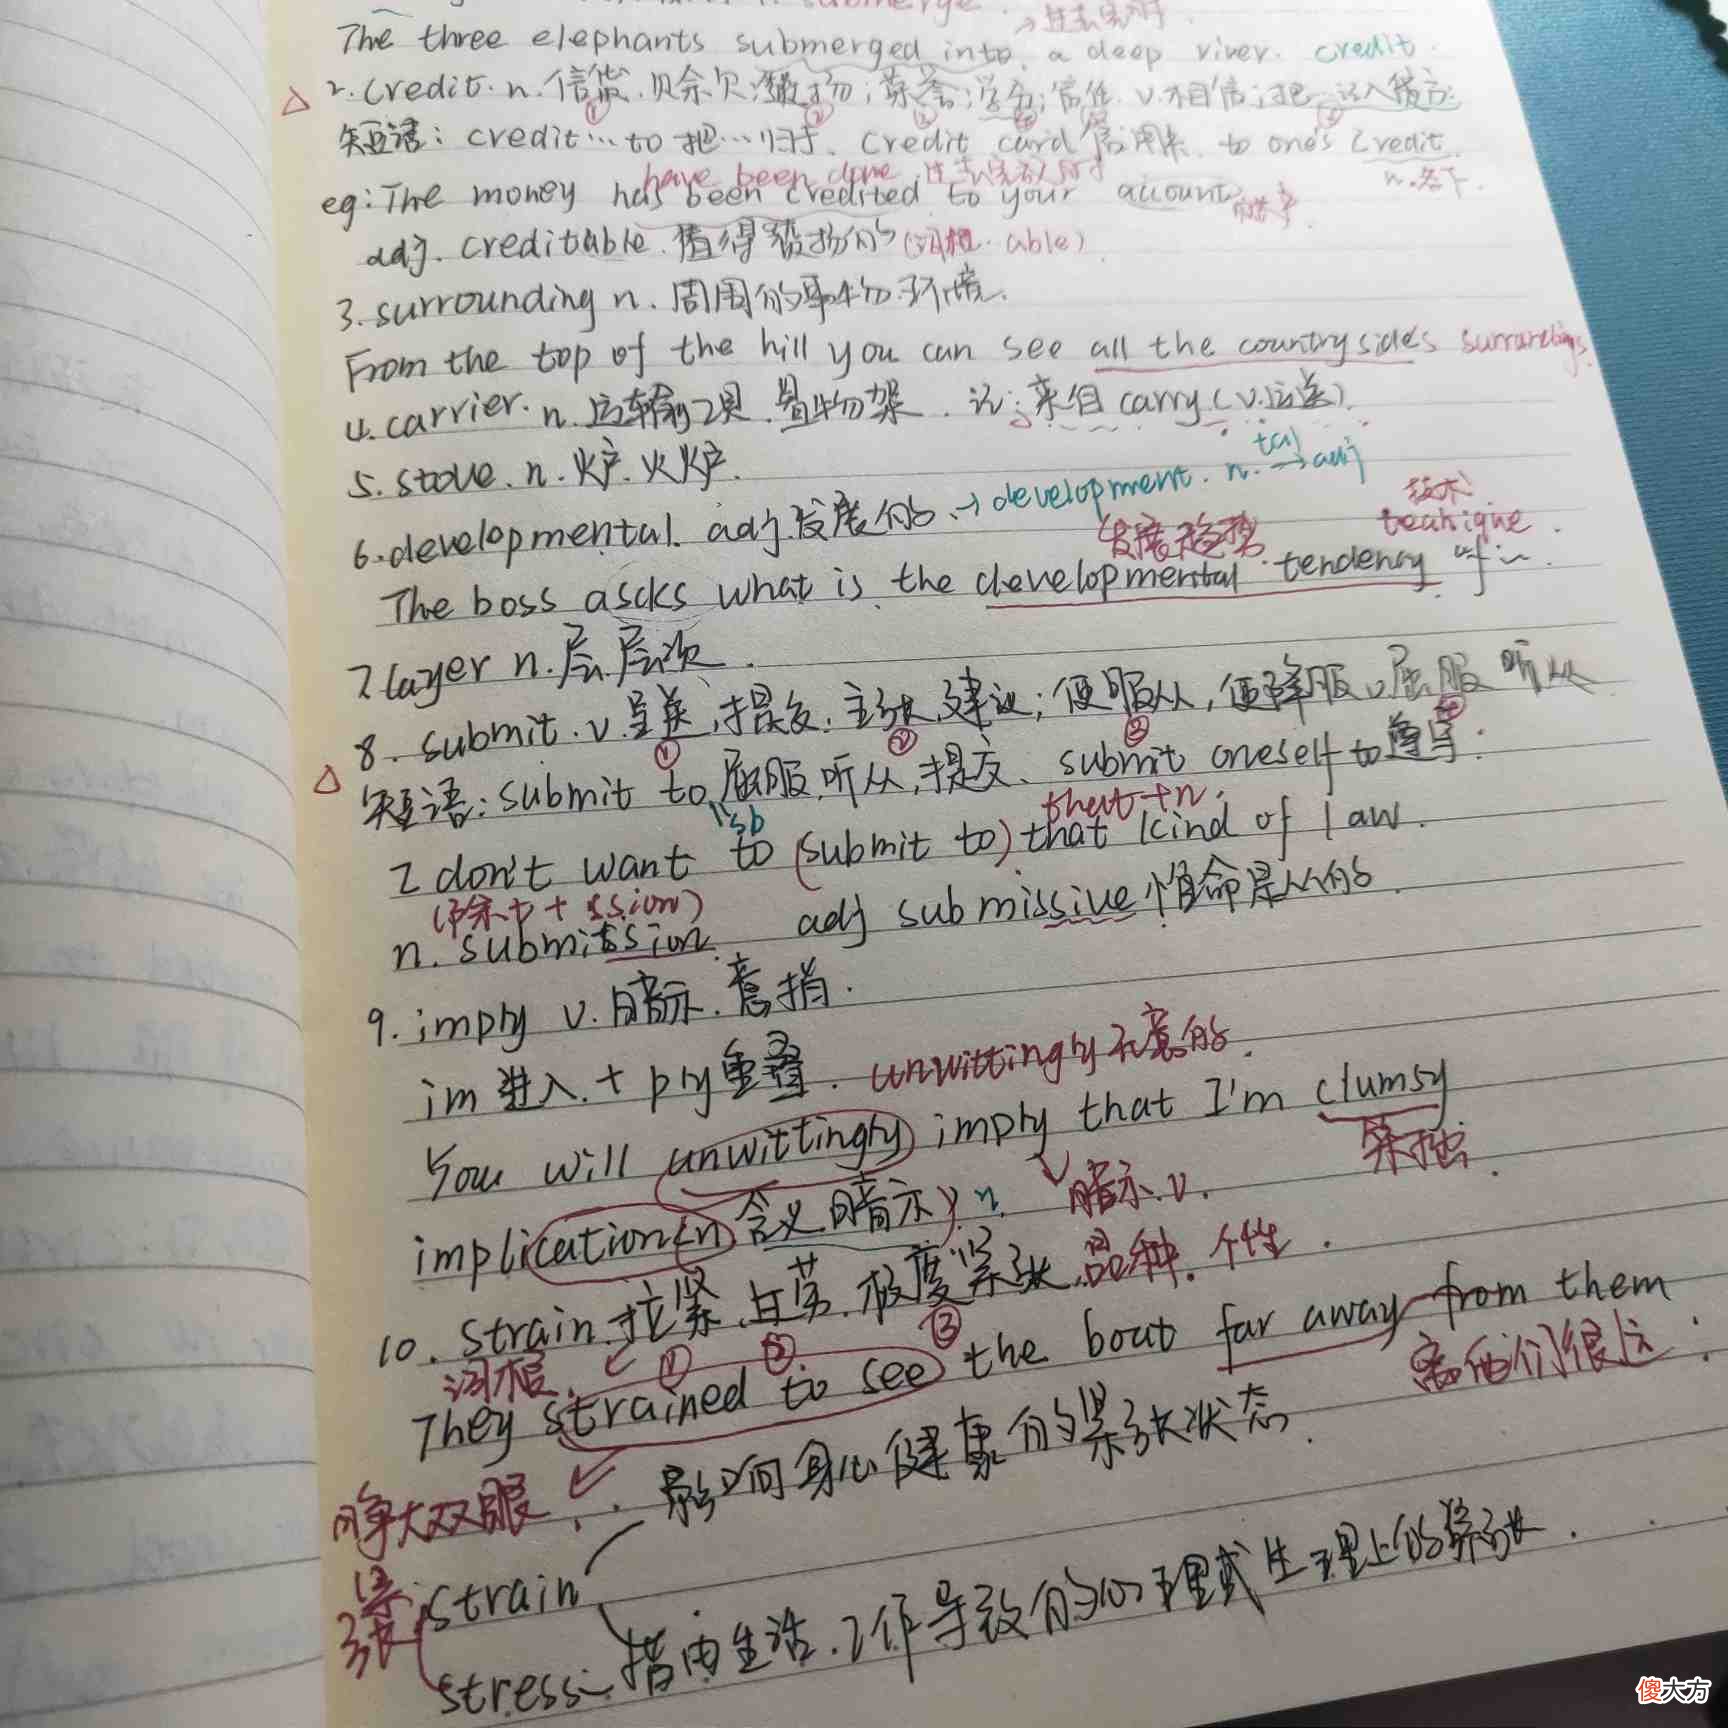 submerge.
The three elephants submerged into a deep river. credit.
2. credit. n. 信贷. 赊欠; 赞扬; 荣誉; 学分; 信任. v. 相信; 把…记入
① ② ③ ④
短语: credit…to 把…归于. credit card 信用卡. to one's credit.
have been done
n. 名下.
eg: The money has been credited to your account
adj. creditable. 值得赞扬的 (词根. able)
3. surrounding n. 周围的事物. 环境.
From the top of the hill you can see all the countrysides surroundings.
4. carrier. n. 运输工具. 置物架. 记: 来自 carry (v. 运送)
5. stove. n. 炉. 火炉.
tal
6. developmental. adj. 发展的. → development. n. → adj
发展趋势 技术 teahique.
The boss ascks what is the developmental tendency of in.
7 layer n. 层. 层次.
8. submit. v. 呈送; 提交. 主张. 建议; 使服从, 使降服. v. 屈服 听从
① ② ③ ④
短语: submit to 屈服, 听从, 提交. submit oneself to 遵守.
sb that+n.
I don't want to (submit to) that kind of law.
(除t + ssion)
n. submission. adj submissive 惟命是从的.
9. imply v. 暗示. 意指.
im 进入 + ply 重叠. unwittingly 不意的.
You will unwittingly imply that I'm clumsy.
暗示. v. 笨拙.
implication (n 含义. 暗示) n.
10. strain. 拉紧. 过劳. 极度紧张. 品种. 个性.
词根. ① ② ③
They strained to see the boat far away from them
离他们很远.
睁大双眼. 影响身心健康的紧张状态.
紧张 strain
stress: 指由生活. 工作导致的心理或生理上的紧张.
傻大方